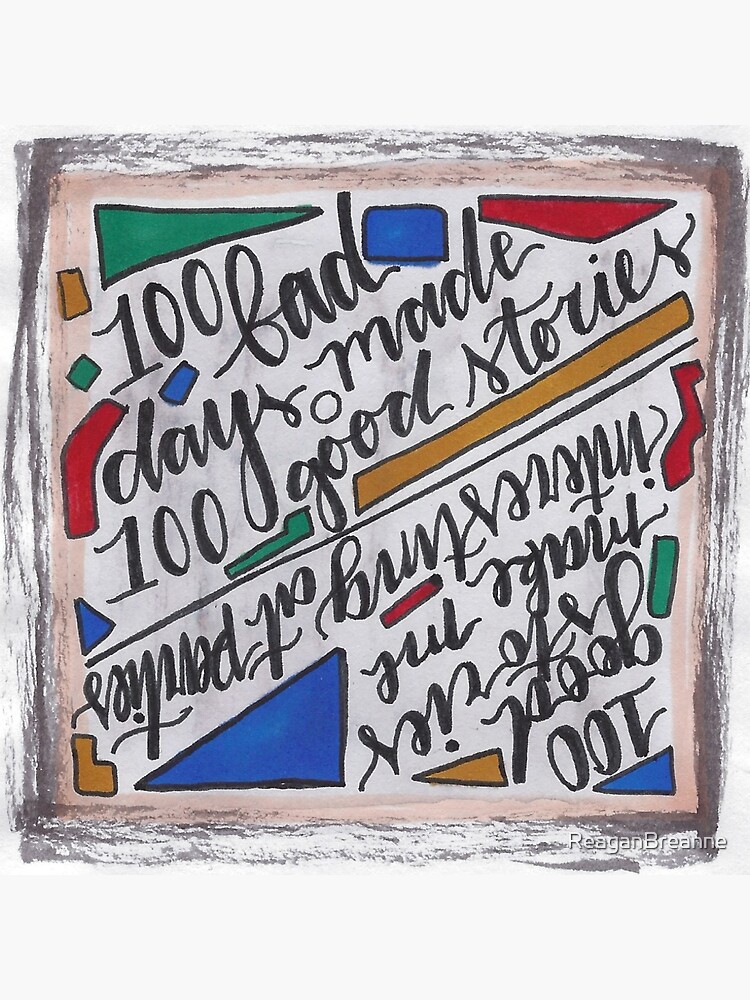 100 bad
days made
100 good stories
100
good stories
make me
interesting
at parties
ReaganBreanne